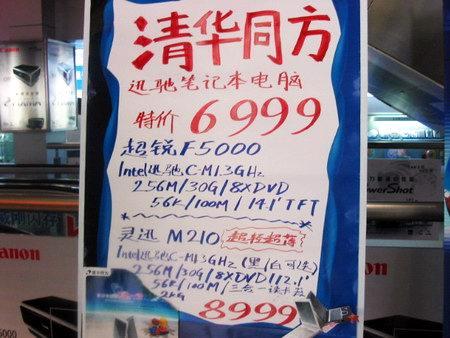 清华同方
迅驰笔记本电脑
特价 6999
超锐F5000
Intel迅驰C-M1.3GHz
256M/30G/8XDVD
56K/100M/14.1"TFT
灵迅 M210 超轻超薄
Intel迅驰C-M1.3GHz(黑/白可选)
256M/30G/8XDVD/12.1"
56K/100M/三合一读卡器
2KG
8999
Canon
PowerShot
anon